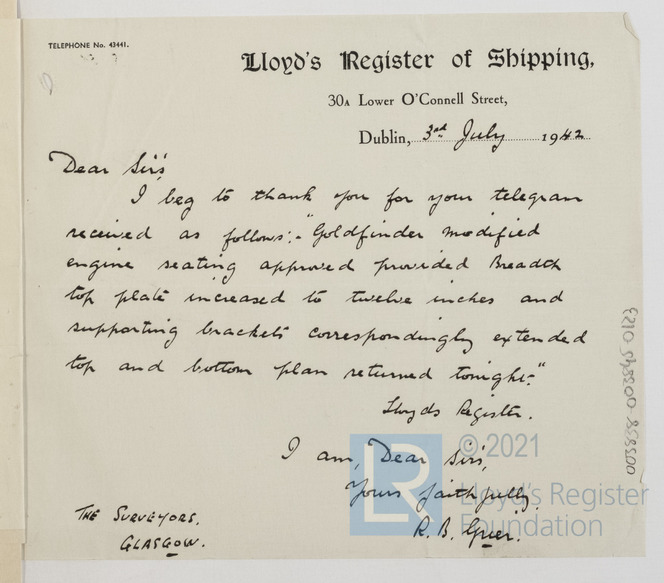 TELEPHONE No. 43441.
Lloyd's Register of Shipping,
30A Lower O'Connell Street,
Dublin, 3rd July 1942
Dear Sirs,
I beg to thank you for your telegram
received as follows:- "Goldfinder modified
engine seating approved provided Breadth
top plate increased to twelve inches and
supporting brackets correspondingly extended
top and bottom plan returned tonight."
Lloyds Register.
I am, Dear Sirs,
Yours faithfully,
R. B. Grier.
THE SURVEYORS.
GLASGOW.
LR
© 2021
Lloyd's Register
Foundation